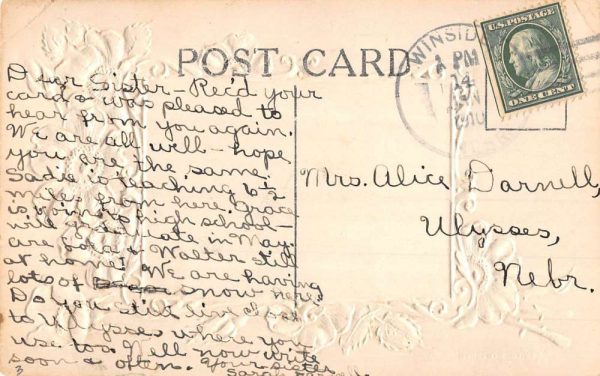 POST CARD
WINSIDE
1 PM
14
JAN
1910
U.S. POSTAGE
ONE CENT
Dear Sister - Rec'd your
card & was pleased to
hear from you again.
We are all well - hope
you are the same.
Sadie is teaching 6½
miles from here, Grace
is going to high school -
will graduate in May.
are Cora & Walter still
at home? We are having
lots of snow here.
Do you still live close
to Ulysses where you
use too. Well now write
soon & often. Your sister
Sarah
3
Mrs. Alice Darnell,
Ulysses,
Nebr.